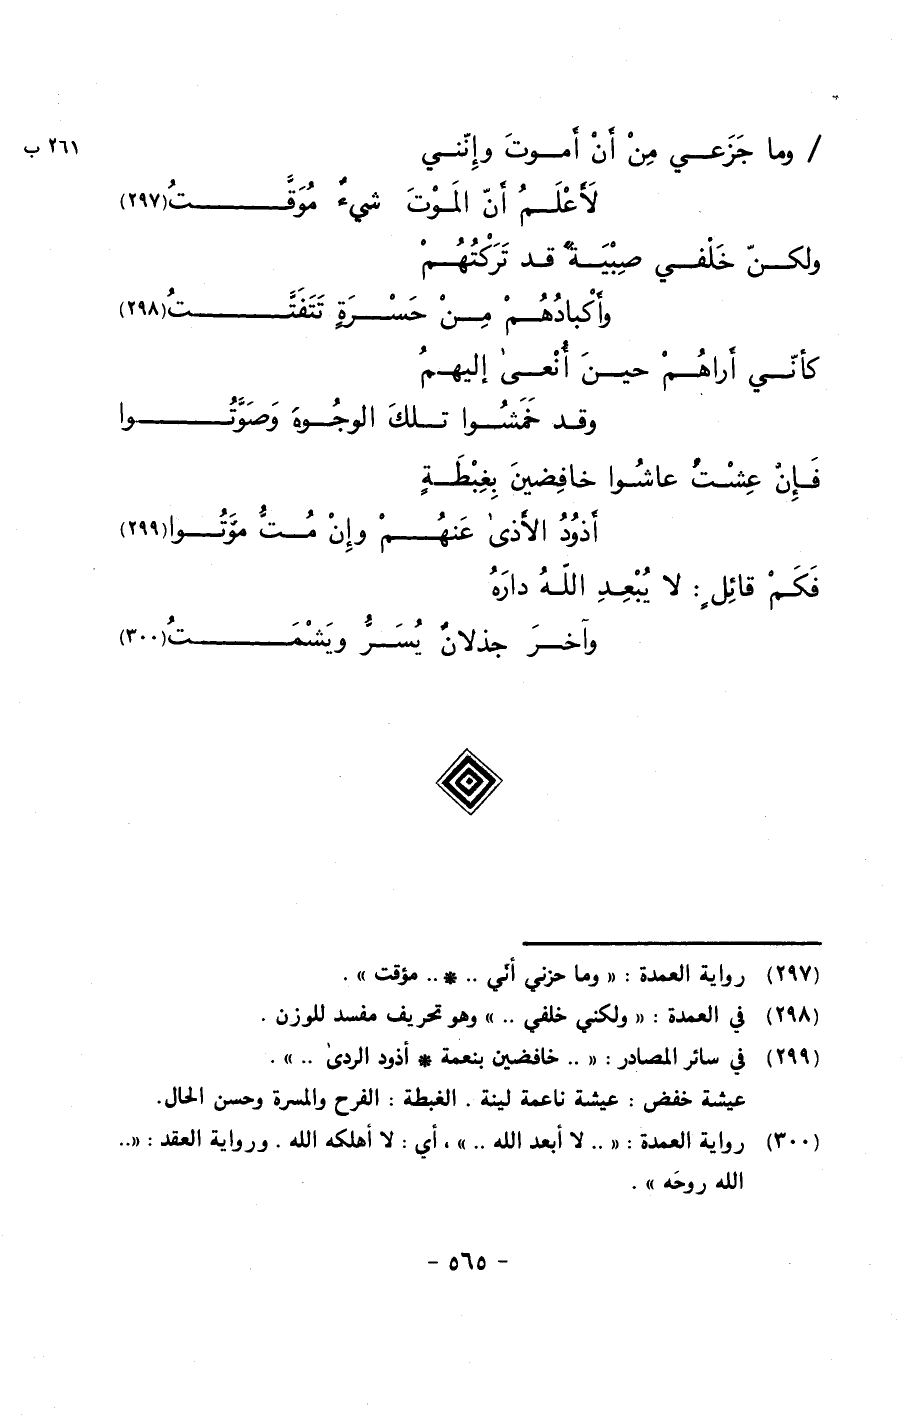 / وما جَزَعـي مِنْ أَنْ أَمـوتَ وإنّني
٢٦١ ب
لَأَعْلَـمُ أَنّ المَـوْتَ شيءٌ مُوَقَّـتُ(٢٩٧)
ولكـنّ خَلْفـي صِبْيَـةً قـد تَرَكْتُهُـمْ
وأَكْبادُهُـمْ مِـنْ حَسْـرَةٍ تَتَفتَّـتُ(٢٩٨)
كأنّـي أَراهُـمْ حيـنَ أُنْعـىٰ إليهـمُ
وقـد خَمَشُـوا تـلكَ الوجُـوهَ وَصَوَّتُـوا
فَـإِنْ عِشْـتُ عاشُـوا خافِضينَ بِغِبْطَـةٍ
أَذوُدُ الأَذىٰ عَنهُـمْ وإِنْ مُـتُّ مُوَّتُـوا(٢٩٩)
فَكَـمْ قائِلٍ : لا يُبْعِـدِ اللّـهُ دارَهُ
وآخـرَ جذلانٌ يُسَـرُّ ويَشْمَـتُ(٣٠٠)
(٢٩٧) رواية العمدة : « وما حزني أنّي .. * .. مؤقت » .
(٢٩٨) في العمدة : « ولكني خلفي .. » وهو تحريف مفسد للوزن .
(٢٩٩) في سائر المصادر : « .. خافضين بنعمة * أذود الردىٰ .. » .
عيشة خفض : عيشة ناعمة لينة . الغبطة : الفرح والمسرة وحسن الحال.
(٣٠٠) رواية العمدة : « .. لا أبعد الله .. » ، أي : لا أهلكه الله . ورواية العقد : «..
الله روحَه » .
- ٥٦٥ -